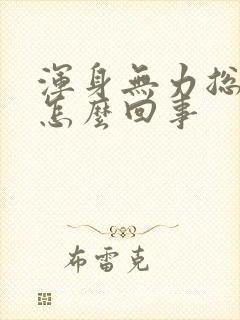 渾身無力总
怎麼回事
布雷克